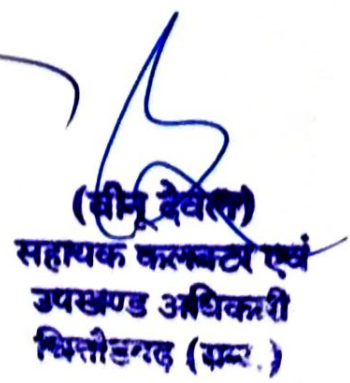 (बीनू देवल)
सहायक कलक्टर एवं
उपखण्ड अधिकारी
चित्तौडगढ (राज.)